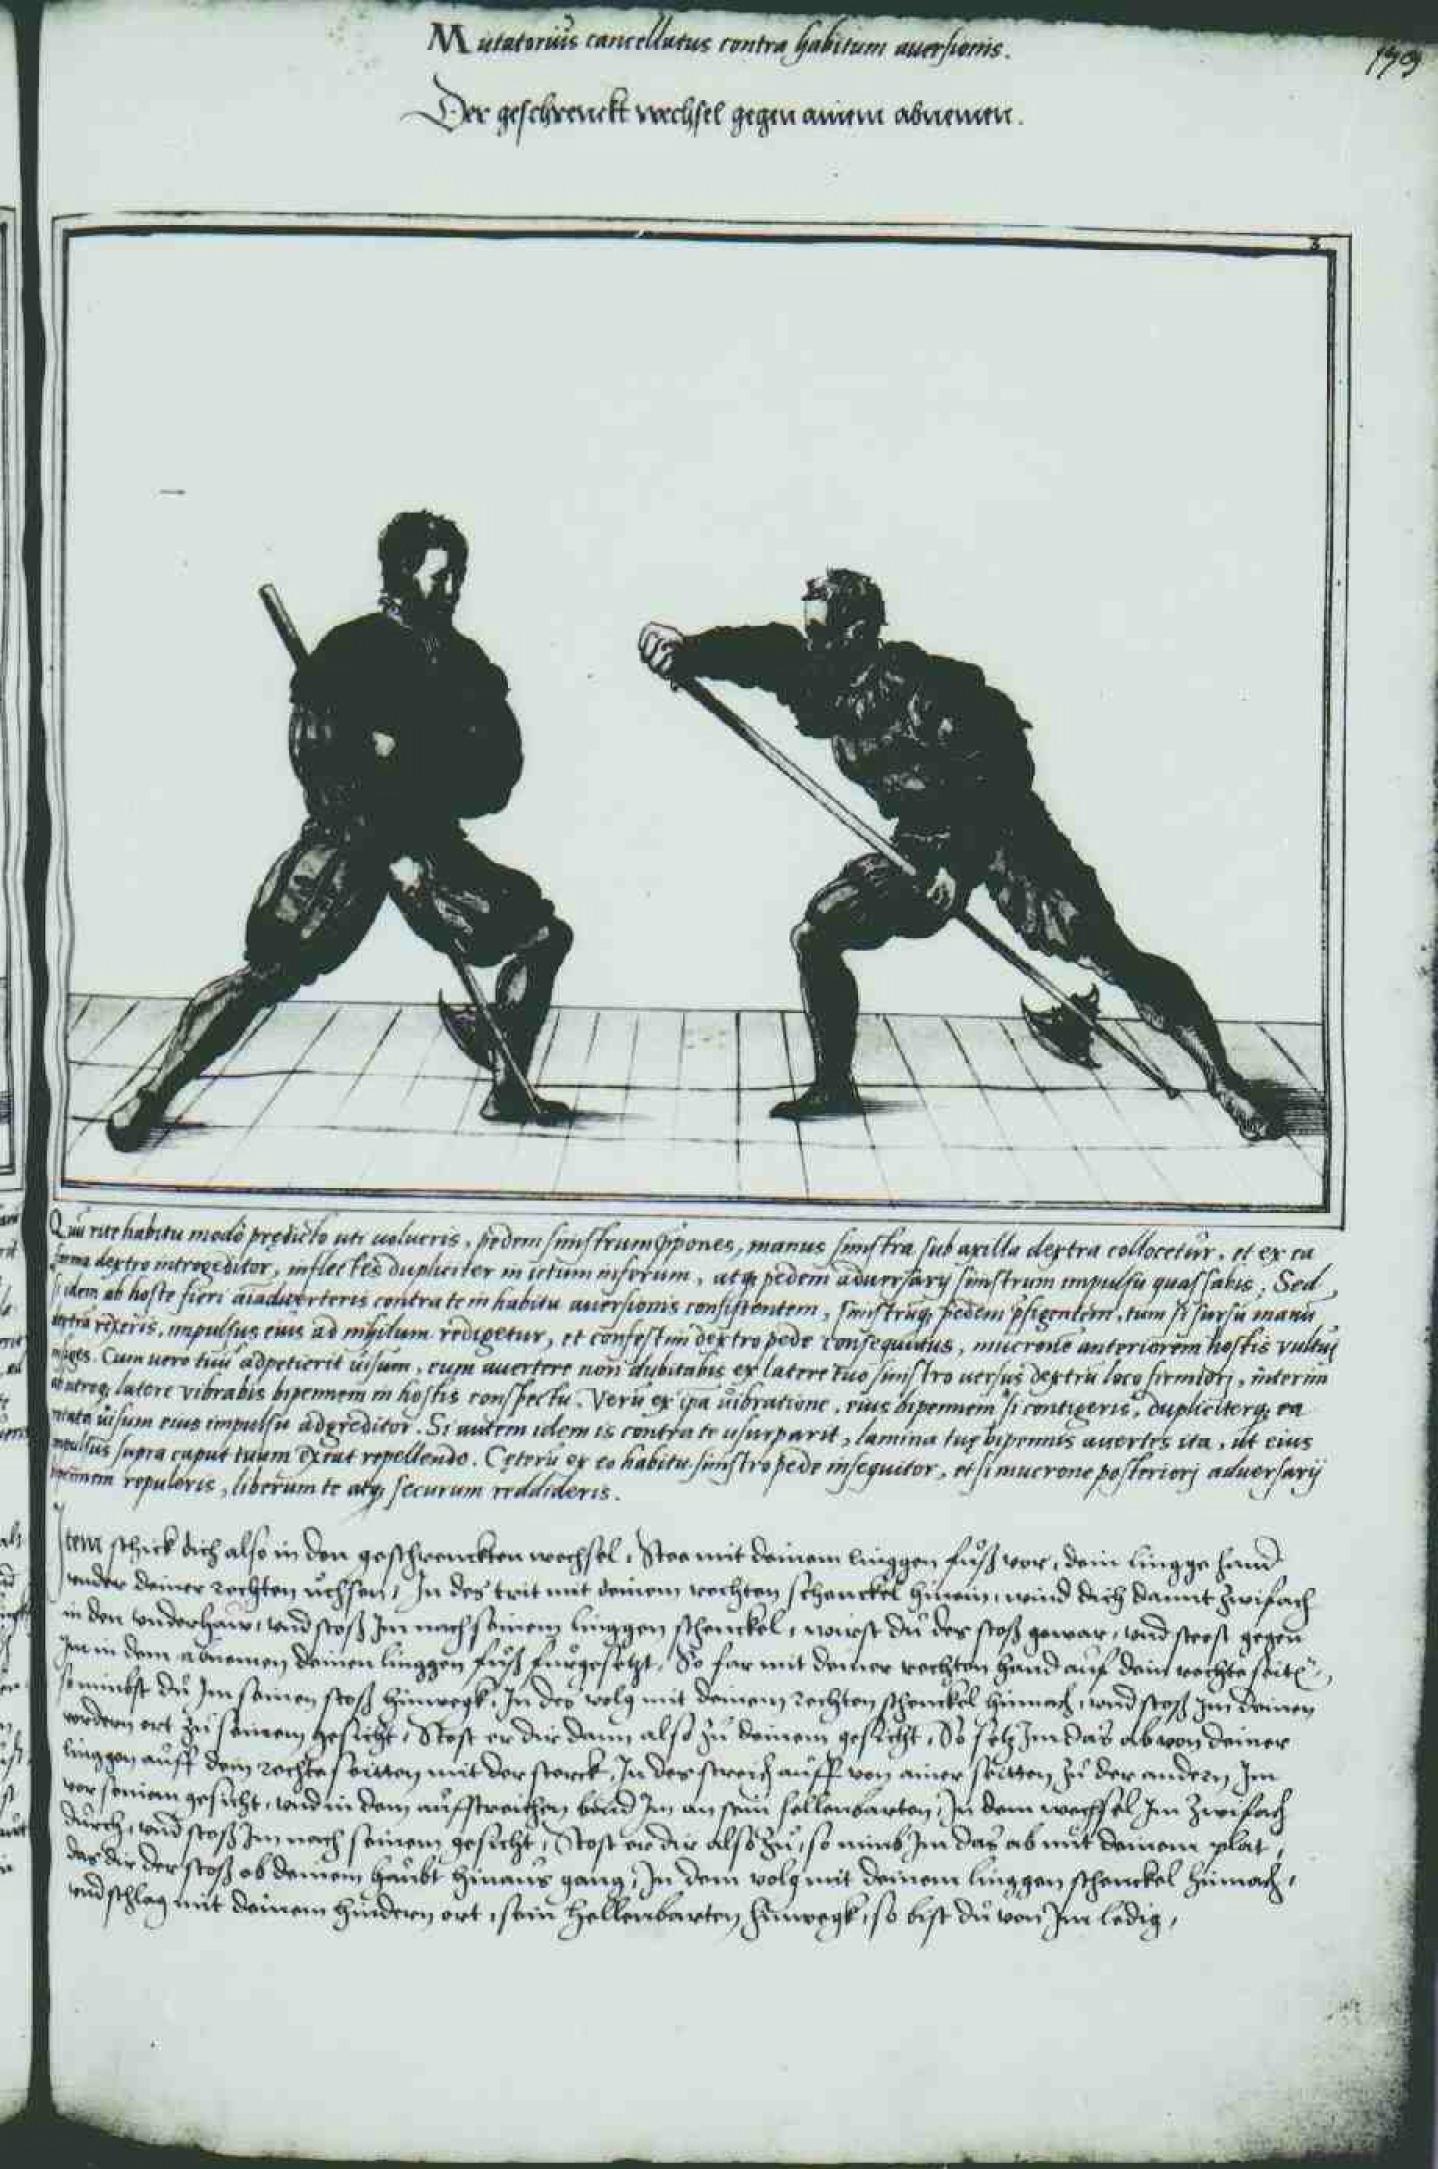 179
Mutatorius cancellatus contra habitum auersionis.
Der geschrenckt wechsel gegen ainem abnemen.
3
Qui rite habitu modo prędicto uti uolueris, pedem sinistrum pones, manus sinistra sub axilla dextra collocetur, et ex ea
forma dextro introgreditor, inflectes dupliciter in ictum inferum, atq; pedem aduersarij sinistrum impulsu quassabis. Sed
si idem ab hoste fieri aiaduerteris contra te in habitu auersionis consistentem, sinistruq; pedem pfigentem, tum si sursu manu
dextra rexeris, impulsus eius ad nihilum redigetur, et confestim dextro pede consequutus, mucronem anteriorem hostis vultuj
infiges. Cum uero tuũ adpetierit uisum, eum auertere non dubitabis ex latere tuo sinistro uersus dextrũ loco firmiorj, interim
ab utroq; latere vibrabis bipennem in hostis conspectu. Verũ ex ipa uibratione, eius bipennem si contigeris, dupliciterq; ea
mutata uisum eius impulsu adgreditor. Si autem idem is contra te usurparit, lamina tuę bipennis auertes ita, ut eius
impulsus supra caput tuum exeat repellendo. Cęterũ ex eo habitu sinistro pede insequitor, et si mucrone posteriorj aduersarij
repuleris, liberum te atq; securum reddideris.
Item schick dich also in den geschrenckten wechsel, Stee mit deinem linggen fuß vor, dein lingge hand
vnder deiner rechten uchsen, In des trit mit deinem rechten schenckel hinein, wind dich damit zwifach
in den vnderhaw, vnd stoß Im nach seinem linggen schenckel, wirst du des stoß gewar, vnd steest gegen
Im in dem abnemen deinen linggen fuß furgesetzt, So far mit deiner rechten hand auf dein rechte seitẽ,
so nimbst du Im seinen stoß hinwegk, In des volg mit deinem rechten schenckel hinnach, vnd stoß Im deinen
vordern ort zu seinem gesicht, Stost er dir dann also zu deinem gesicht, So setz Im das ab von deiner
linggen auff dein rechte seitten mit der sterck, In des streich auff von ainer seitten zu der andern Im
vor seinem gesicht, vnd in dem auffstreichen bind Im an sein hellenbarten, In dem wechsel Im zwifach
durch, vnd stoß Im nach seinem gesicht, Stost er dir also zu, so nimb Im das ab mit deinem plat,
das dir der stoß ob deinem haubt hinaus gang, In dem volg mit deinem linggen schenckel hinnach,
vnd schlag mit deinem hindern ort, sein hellenbarten hinwegk, so bist du von Im ledig,